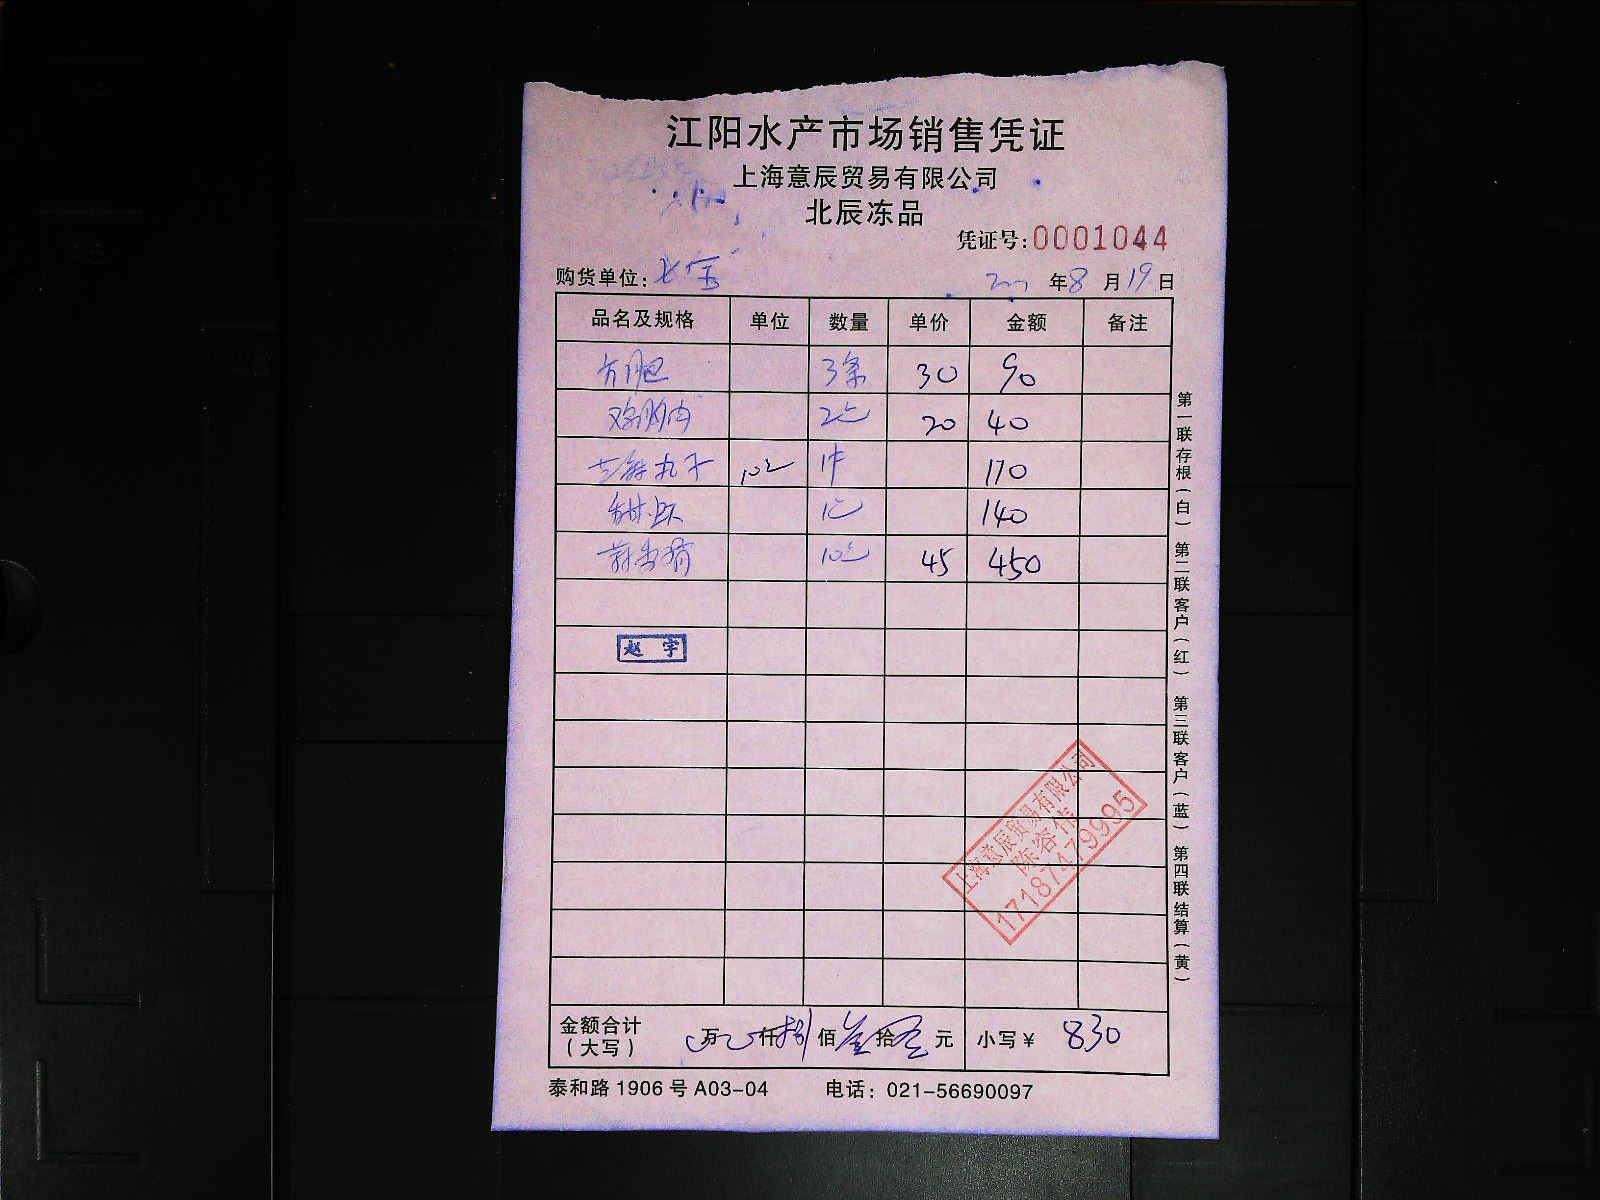 江阳水产市场销售凭证
上海意辰贸易有限公司
北辰冻品
凭证号:0001044
购货单位:
年8月19日
品名及规格 单位 数量 单价 金额 备注
方腿 3条 30 90
鸡胸肉 2包 20 40
丸子 10包 1件 170
1包 140
10包 45 450
赵宇
上海意辰贸易有限公司
陈容伟
17187479995
金额合计(大写) 万 仟捌佰叁拾零元 小写¥ 830
泰和路1906号A03-04 电话:021-56690097
第一联存根(白) 第二联客户(红) 第三联客户(蓝) 第四联结算(黄)